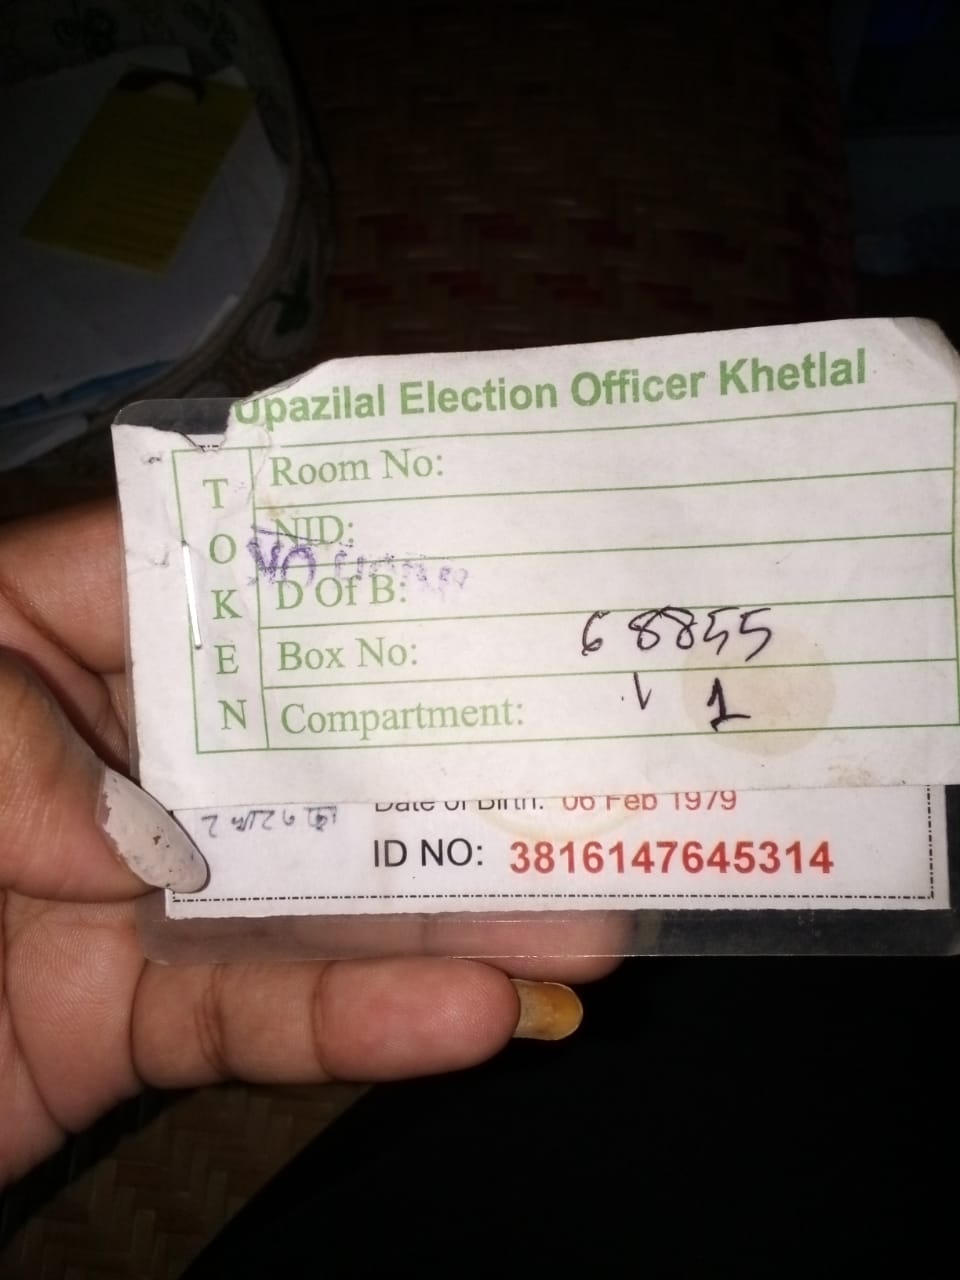 Upazilal Election Officer Khetlal
TOKEN
Room No:
NID:
D Of B:
Box No: 68855
Compartment: 1
Date of Birth: 06 Feb 1979
ID NO: 3816147645314